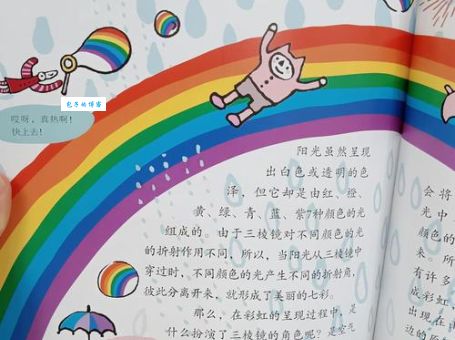 包子的博客
哎呀，真热啊！
快上去！
阳光虽然呈现
出白色或透明的色
泽，但它却是由红、橙、
黄、绿、青、蓝、紫7种颜色的光
组成的。由于三棱镜对不同颜色的光
的折射作用不同，所以，当阳光从三棱镜中
穿过时，不同颜色的光产生不同的折射角，
彼此分离开来，就形成了美丽的七彩。
那么，在彩虹的呈现过程中，是
什么扮演了三棱镜的角呢？是空气
会将
光中
颜色的
来。所
有许多
成彩虹，
出现在雨
边的